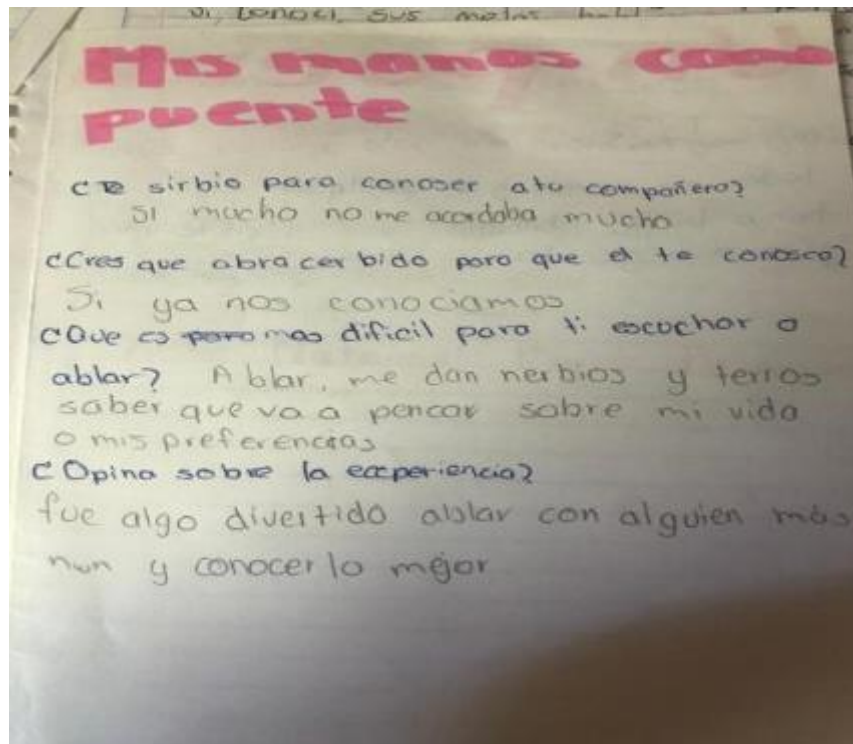 si, conoci, sus metas
Mis manos como
puente
¿Te sirbio para conoser atu compañero?
SI mucho no me acordaba mucho
¿Cres que abra cer bido para que el te conosca?
Si ya nos conociamos
¿Que es para mas dificil para ti escuchar o
ablar? Ablar, me dan nerbios y terros
saber que va a pencar sobre mi vida
o mis preferencias
¿Opina sobre la experiencia?
fue algo divertido ablar con alguien más
y conocerlo mejor